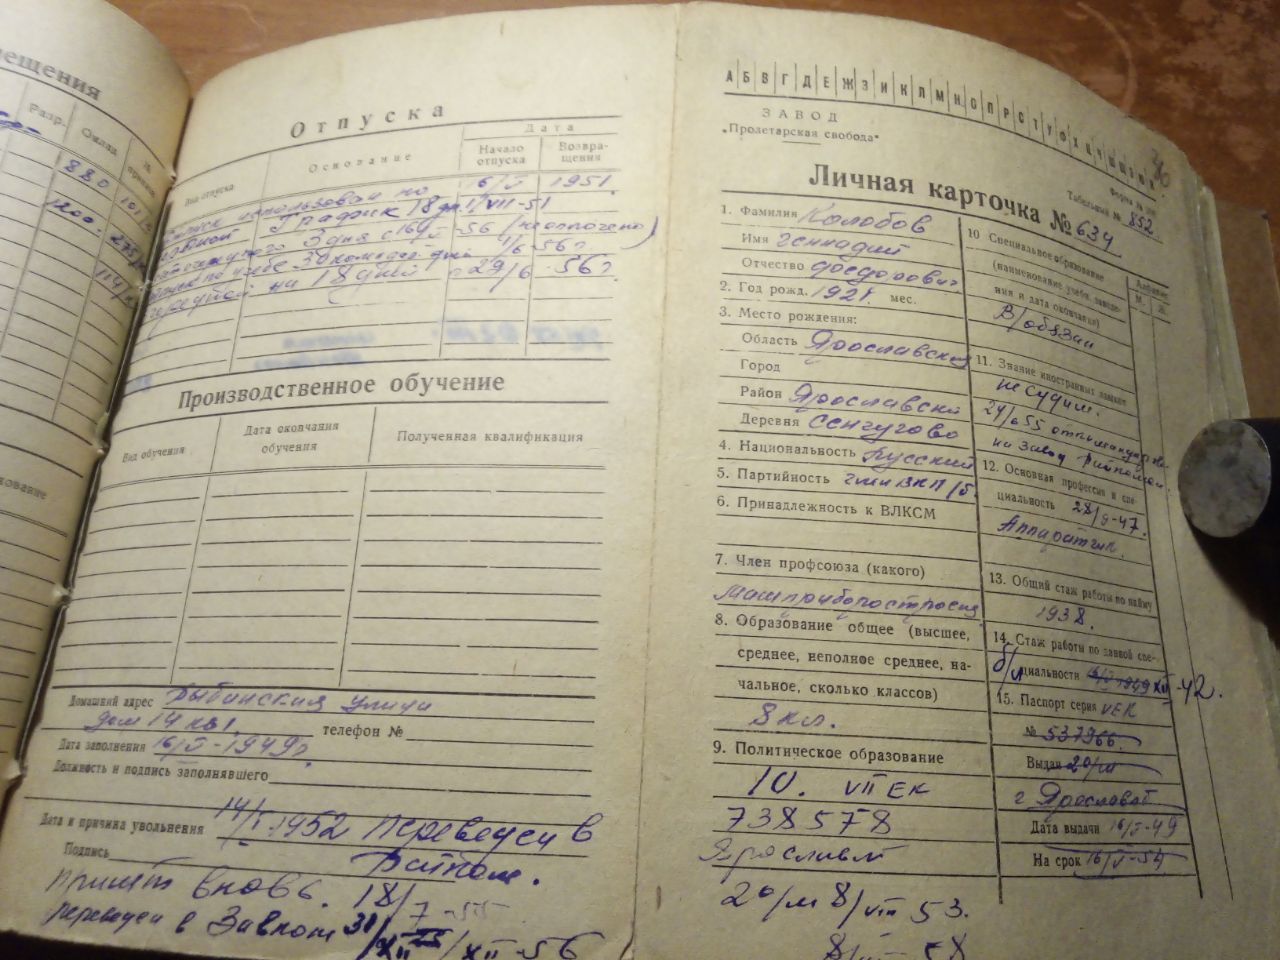 ещения
Разр.
Оклад
№
880
1200.
Отпуска
Вид отпуска
Основание
Дата
Начало отпуска
Возвра-щения
16/V 1951.
График 18 дн. 1/VII-51
3 дня с 16/V -56 (неоплочено)
4/6 56г.
на 18 дней с 29/6 -56г
Производственное обучение
Вид обучения
Дата окончания обучения
Полученная квалификация
Домашний адрес Рыбинская улица
дом 14 кв 1. телефон №
Дата заполнения 16/V-1949г.
Должность и подпись заполнявшего
Дата и причина увольнения 14/I-1952 переведен в
Подпись Райпом.
принят вновь. 18/7-55
переведен в Завком 31/XII-56
А Б В Г Д Е Ж З И К Л М Н О П Р С Т У Ф Х Ц Ч Ш Щ Э Ю Я
ЗАВОД
„Пролетарская свобода"
Форма №
Табельный № 852.
Личная карточка № 634
1. Фамилия Колобов
Имя Геннадий
Отчество Федорович
2. Год рожд. 1921. мес.
3. Место рождения:
Область Ярославская
Город
Район Ярославский
Деревня Сенчугово
4. Национальность Русский
5. Партийность член ВКП/б.
6. Принадлежность к ВЛКСМ
7. Член профсоюза (какого)
Машприборостроения
8. Образование общее (высшее,
среднее, неполное среднее, на-
чальное, сколько классов)
8 кл.
9. Политическое образование
10. VII ЕК
738578
Ярославль
20/м 8/VIII 53.
10 Специальное образование
(наименование учебн. заведе-
ния и дата окончания)
В/обязан
11. Знание иностранных языков
не судим.
24/6 55 откомандирован
на завод
12. Основная профессия и спе-
циальность 28/9-47.
Аппаратчик.
13. Общий стаж работы по найму
1938.
14. Стаж работы по данной спе-
б/п циальности 16/V 1949 XII-42.
15. Паспорт серия VЕК
№ 537966.
Выдан 20/м
г Ярославль
Дата выдачи 16/V-49
На срок 16/V-54